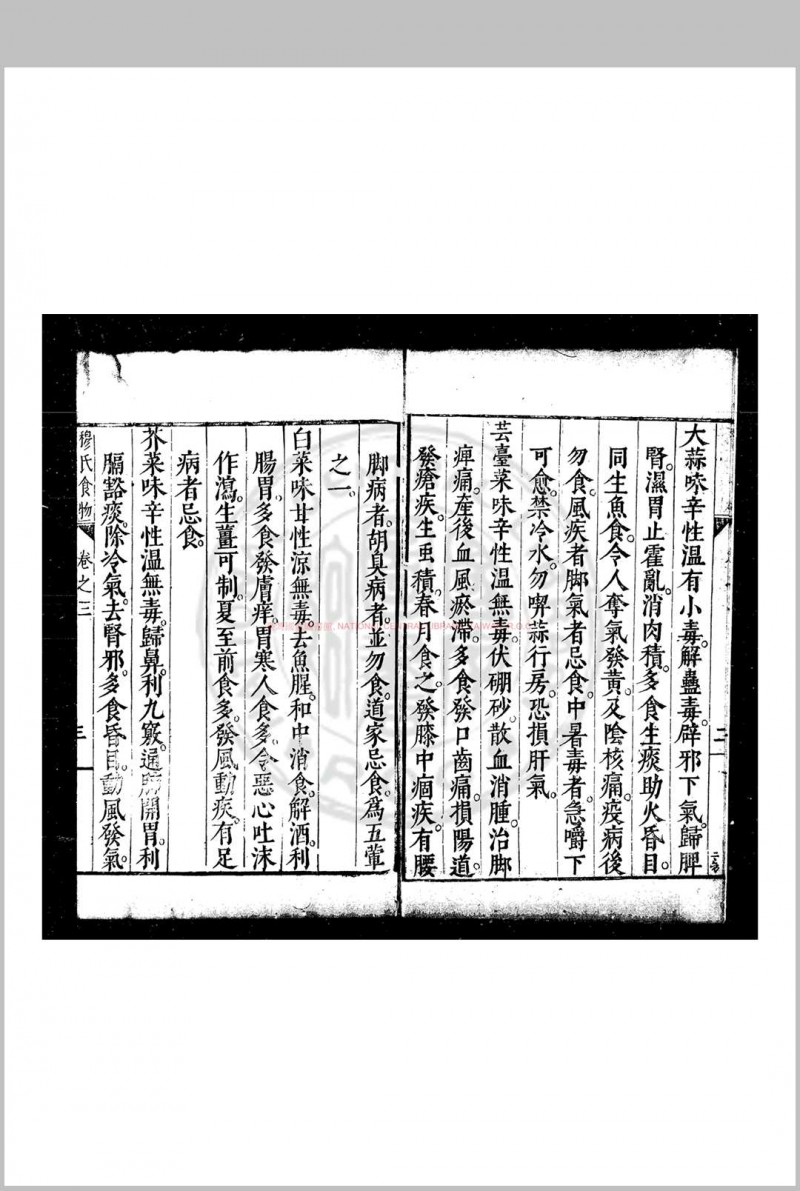 大蒜味辛性溫有小毒。解蠱毒。辟邪下氣。歸脾
腎。濕胃止霍亂。消肉積。多食生痰助火昏目。
同生魚食。令人奪氣發黃。及陰核痛。疫病後
勿食。風疾者脚氣者忌食。中暑毒者。急嚼下
可愈。禁冷水。勿喫蒜行房。恐損肝氣。
芸臺菜味辛性溫無毒。伏硼砂。散血消腫。治脚
痺痛。產後血風瘀滯。多食發口齒痛。損陽道。
發瘡疾。生虫積。春月食之。發膝中痼疾。有腰
二
脚病者。胡臭病者。並勿食。道家忌食。為五葷
之一。
白菜味甘性涼無毒。去魚腥。和中消食。解酒。利
腸胃。多食發膚痒。胃寒人食多。令惡心吐沫
作瀉。生薑可制。夏至前食多。發風動疾。有足
病者忌食。
芥菜味辛性溫無毒。歸鼻。利九竅。通肺開胃。利
膈豁痰。除冷氣。去腎邪。多食昏目。動風發氣。
穆氏食物 卷之三 三
NATIONAL CENTRAL LIBRARY